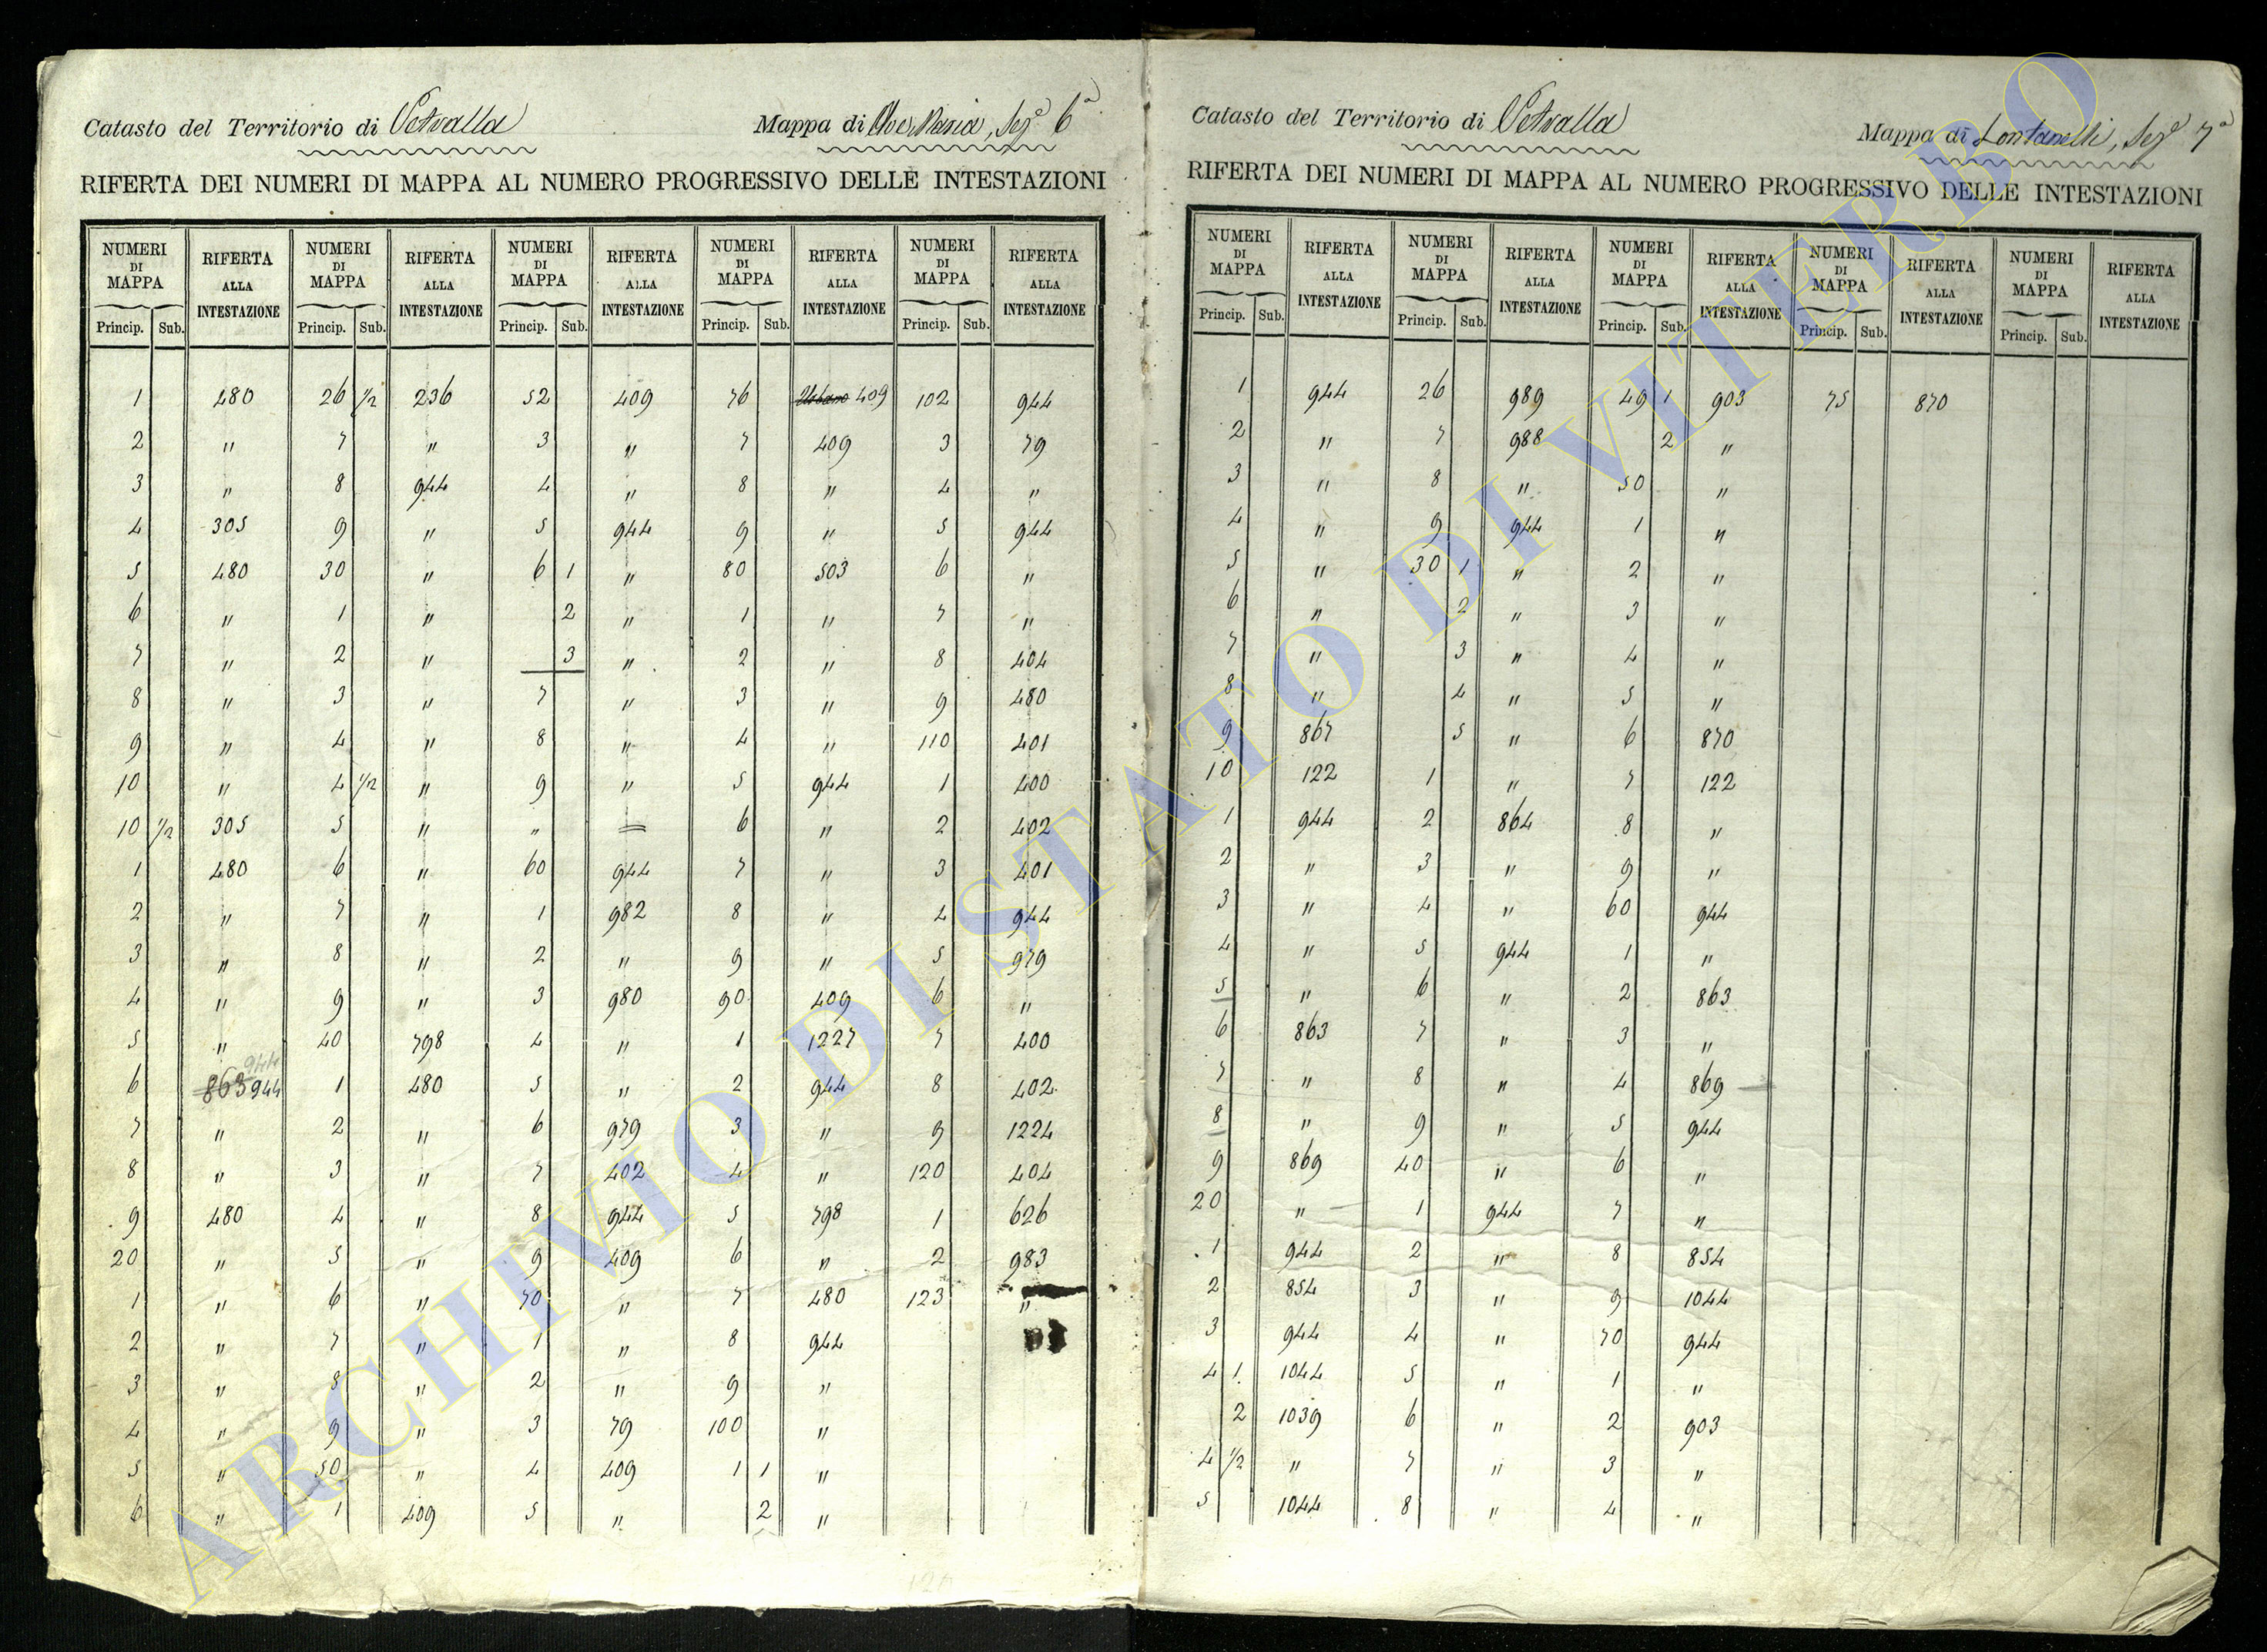 Catasto del Territorio di Vetralla Mappa di Ave Maria, Sez.e 6a
RIFERTA DEI NUMERI DI MAPPA AL NUMERO PROGRESSIVO DELLE INTESTAZIONI
NUMERI DI MAPPA RIFERTA ALLA INTESTAZIONE NUMERI DI MAPPA RIFERTA ALLA INTESTAZIONE NUMERI DI MAPPA RIFERTA ALLA INTESTAZIONE NUMERI DI MAPPA RIFERTA ALLA INTESTAZIONE NUMERI DI MAPPA RIFERTA ALLA INTESTAZIONE
Princip. Sub. Princip. Sub. Princip. Sub. Princip. Sub. Princip. Sub.
1 480 26 1/2 236 52 409 76 Urbano 409 102 944
2 " 7 " 3 " 7 409 3 79
3 " 8 944 4 " 8 " 4 "
4 305 9 " 5 944 9 " 5 944
5 480 30 " 6 1 " 80 503 6 "
6 " 1 " 2 " 1 " 7 "
7 " 2 " 3 " 2 " 8 404
8 " 3 " 7 " 3 " 9 480
9 " 4 " 8 " 4 " 110 401
10 " 4 1/2 " 9 " 5 944 1 400
10 1/2 305 5 " " = 6 " 2 402
1 480 6 " 60 944 7 " 3 401
2 " 7 " 1 982 8 " 4 944
3 " 8 " 2 " 9 " 5 979
4 " 9 " 3 980 90 409 6 "
5 " 40 798 4 " 1 1227 7 400
944
6 863 944 1 480 5 " 2 944 8 402
7 " 2 " 6 979 3 " 9 1224
8 " 3 " 7 402 4 " 120 404
9 480 4 " 8 944 5 798 1 626
20 " 5 " 9 409 6 " 2 983
1 " 6 " 70 " 7 480 123 "
2 " 7 " 1 " 8 944
3 " 8 " 2 " 9 "
4 " 9 " 3 79 100 "
5 " 50 " 4 409 1 1 "
6 " 1 409 5 " 2 "
Catasto del Territorio di Vetralla Mappa di Fontanelli, Sez.e 7a
RIFERTA DEI NUMERI DI MAPPA AL NUMERO PROGRESSIVO DELLE INTESTAZIONI
NUMERI DI MAPPA RIFERTA ALLA INTESTAZIONE NUMERI DI MAPPA RIFERTA ALLA INTESTAZIONE NUMERI DI MAPPA RIFERTA ALLA INTESTAZIONE NUMERI DI MAPPA RIFERTA ALLA INTESTAZIONE NUMERI DI MAPPA RIFERTA ALLA INTESTAZIONE
Princip. Sub. Princip. Sub. Princip. Sub. Princip. Sub. Princip. Sub.
1 944 26 989 49 1 903 75 870
2 " 7 988 2 "
3 " 8 " 50 "
4 " 9 944 1 "
5 " 30 1 " 2 "
6 " 2 " 3 "
7 " 3 " 4 "
8 " 4 " 5 "
9 867 5 " 6 870
10 122 1 " 7 122
1 944 2 864 8 "
2 " 3 " 9 "
3 " 4 " 60 944
4 " 5 944 1 "
5 " 6 " 2 863
6 863 7 " 3 "
7 " 8 " 4 869
8 " 9 " 5 944
9 869 40 " 6 "
20 " 1 944 7 "
1 944 2 " 8 854
2 854 3 " 9 1044
3 944 4 " 70 944
4 1 1044 5 " 1 "
2 1039 6 " 2 903
4 1/2 " 7 " 3 "
5 1044 8 " 4 "
ARCHIVIO DI STATO DI VITERBO